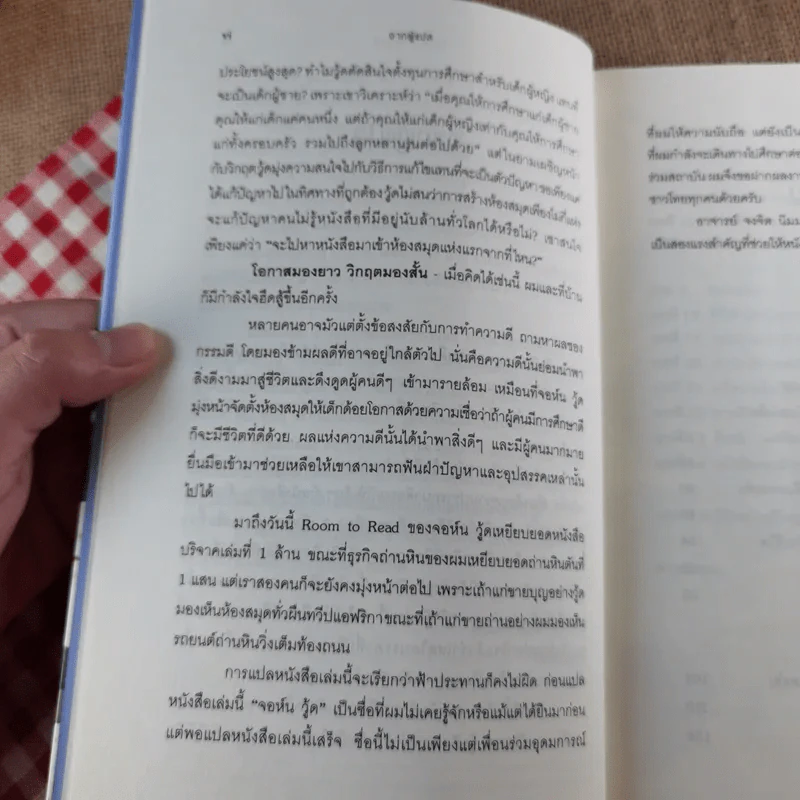 จากผู้แปล
ประโยชน์สูงสุด? ทำไมวู้ดตัดสินใจตั้งทุนการศึกษาสำหรับเด็กผู้หญิง แทนที่
จะเป็นเด็กผู้ชาย? เพราะเขาวิเคราะห์ว่า “เมื่อคุณให้การศึกษาแก่เด็กผู้ชาย
คุณให้แก่เด็กแค่คนหนึ่ง แต่ถ้าคุณให้แก่เด็กผู้หญิงเท่ากับคุณให้การศึกษา
แก่ทั้งครอบครัว รวมไปถึงลูกหลานรุ่นต่อไปด้วย” แต่ในยามเผชิญหน้า
กับวิกฤตวู้ดมุ่งความสนใจไปกับวิธีการแก้ไขแทนที่จะเป็นตัวปัญหา ขอเพียงแต่
ได้แก้ปัญหาไปในทิศทางที่ถูกต้อง วู้ดไม่สนว่าการสร้างห้องสมุดเพียงไม่กี่แห่ง
จะแก้ปัญหาคนไม่รู้หนังสือที่มีอยู่นับล้านทั่วโลกได้หรือไม่? เขาสนใจ
เพียงแค่ว่า “จะไปหาหนังสือมาเข้าห้องสมุดแห่งแรกจากที่ไหน?”
โอกาสมองยาว วิกฤตมองสั้น - เมื่อคิดได้เช่นนี้ ผมและที่บ้าน
ก็มีกำลังใจฮึดสู้ขึ้นอีกครั้ง
หลายคนอาจมัวแต่ตั้งข้อสงสัยกับการทำความดี ถามหาผลของ
กรรมดี โดยมองข้ามผลดีที่อาจอยู่ใกล้ตัวไป นั่นคือความดีนั้นย่อมนำพา
สิ่งดีงามมาสู่ชีวิตและดึงดูดผู้คนดีๆ เข้ามารายล้อม เหมือนที่จอห์น วู้ด
มุ่งหน้าจัดตั้งห้องสมุดให้เด็กด้อยโอกาสด้วยความเชื่อว่าถ้าผู้คนมีการศึกษาดี
ก็จะมีชีวิตที่ดีด้วย ผลแห่งความดีนั้นได้นำพาสิ่งดีๆ และมีผู้คนมากมาย
ยื่นมือเข้ามาช่วยเหลือให้เขาสามารถฟันฝ่าปัญหาและอุปสรรคเหล่านั้น
ไปได้
มาถึงวันนี้ Room to Read ของจอห์น วู้ดเหยียบยอดหนังสือ
บริจาคเล่มที่ 1 ล้าน ขณะที่ธุรกิจถ่านหินของผมเหยียบยอดถ่านหินตันที่
1 แสน แต่เราสองคนก็จะยังคงมุ่งหน้าต่อไป เพราะเถ้าแก่ขายบุญอย่างวู้ด
มองเห็นห้องสมุดทั่วผืนทวีปแอฟริกาขณะที่เถ้าแก่ขายถ่านอย่างผมมองเห็น
รถยนต์ถ่านหินวิ่งเต็มท้องถนน
การแปลหนังสือเล่มนี้จะเรียกว่าฟ้าประทานก็คงไม่ผิด ก่อนแปล
หนังสือเล่มนี้ “จอห์น วู้ด” เป็นชื่อที่ผมไม่เคยรู้จักหรือแม้แต่ได้ยินมาก่อน
แต่พอแปลหนังสือเล่มนี้เสร็จ ชื่อนี้ไม่เป็นเพียงแต่เพื่อนร่วมอุดมการณ์
ที่ผมให้ความนับถือ แต่ยังเป็น
ที่ผมกำลังจะเดินทางไปศึกษาต่อ
ร่วมสถาบัน ผมจึงขอฝากผลงาน
ชาวไทยทุกคนด้วยครับ
อาจารย์ จงจิต นิมม
เป็นสองแรงสำคัญที่ช่วยให้หนัง